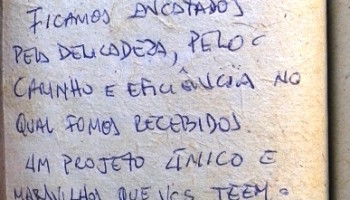 FICAMOS ENCATADOS
PELA DELICADEZA, PELO
CARINHO E EFICIÊNCIA NO
QUAL FOMOS RECEBIDOS.
UM PROJETO ÚNICO E
MARAVILHOS QUE VCS TEEM.